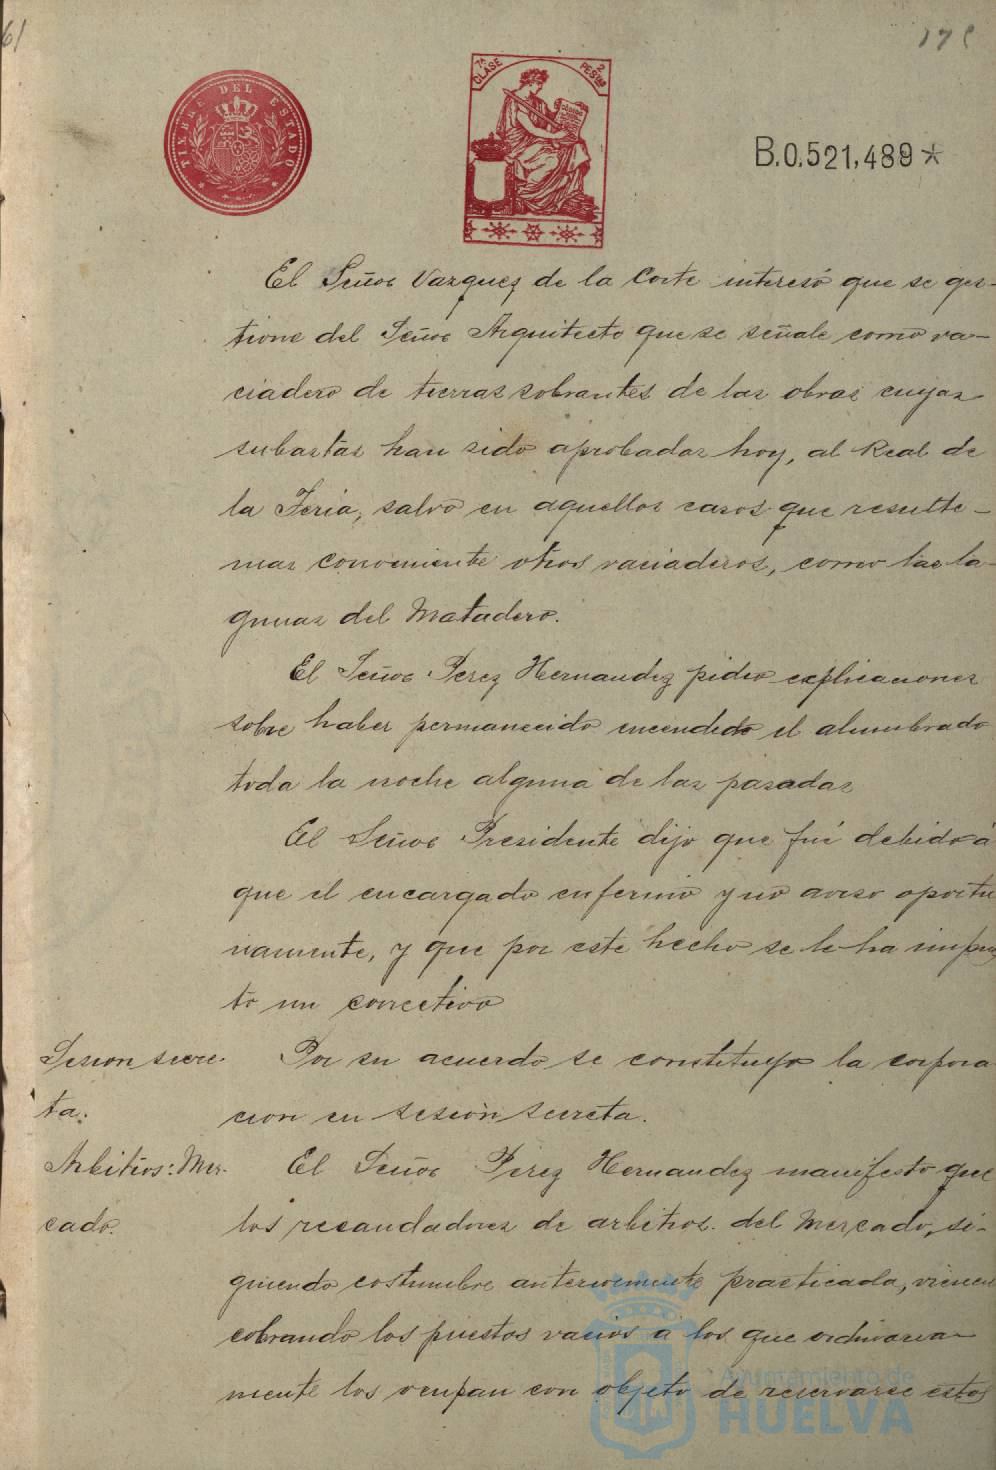 61
TIMBRE DEL ESTADO
7ª CLASE
2 PESTAS
B.0.521,489*
El Señor Vazquez de la Corte interesó que se ges-
tione del Señor Arquitecto que se señale como va-
ciadero de tierras sobrantes de las obras cuyas
subastas han sido aprobadas hoy, al Real de
la Feria, salvo en aquellos casos que resulte-
mas conveniente otros vaciaderos, como las la-
gunas del Matadero.
El Señor Perez Hernandez pidio explicaciones
sobre haber permanecido encendido el alumbrado
toda la noche alguna de las pasadas
El Señor Presidente dijo que fué debido á
que el encargado enfermo y no aviso oportu
namente, y que por este hecho se le ha impues
to un correctivo
Sesion secre-
ta.
Por su acuerdo se constituyo la corpora
cion en sesión secreta.
Arbitrios: Mer-
cado.
El Señor Perez Hernandez manifesto que
los recaudadores de arbitrios del Mercado, si-
guiendo costumbre anteriormente practicada, vienen
cobrando los puestos vacios a los que ordinaria-
mente los ocupan con objeto de reservarse estos
Ayuntamiento de
HUELVA